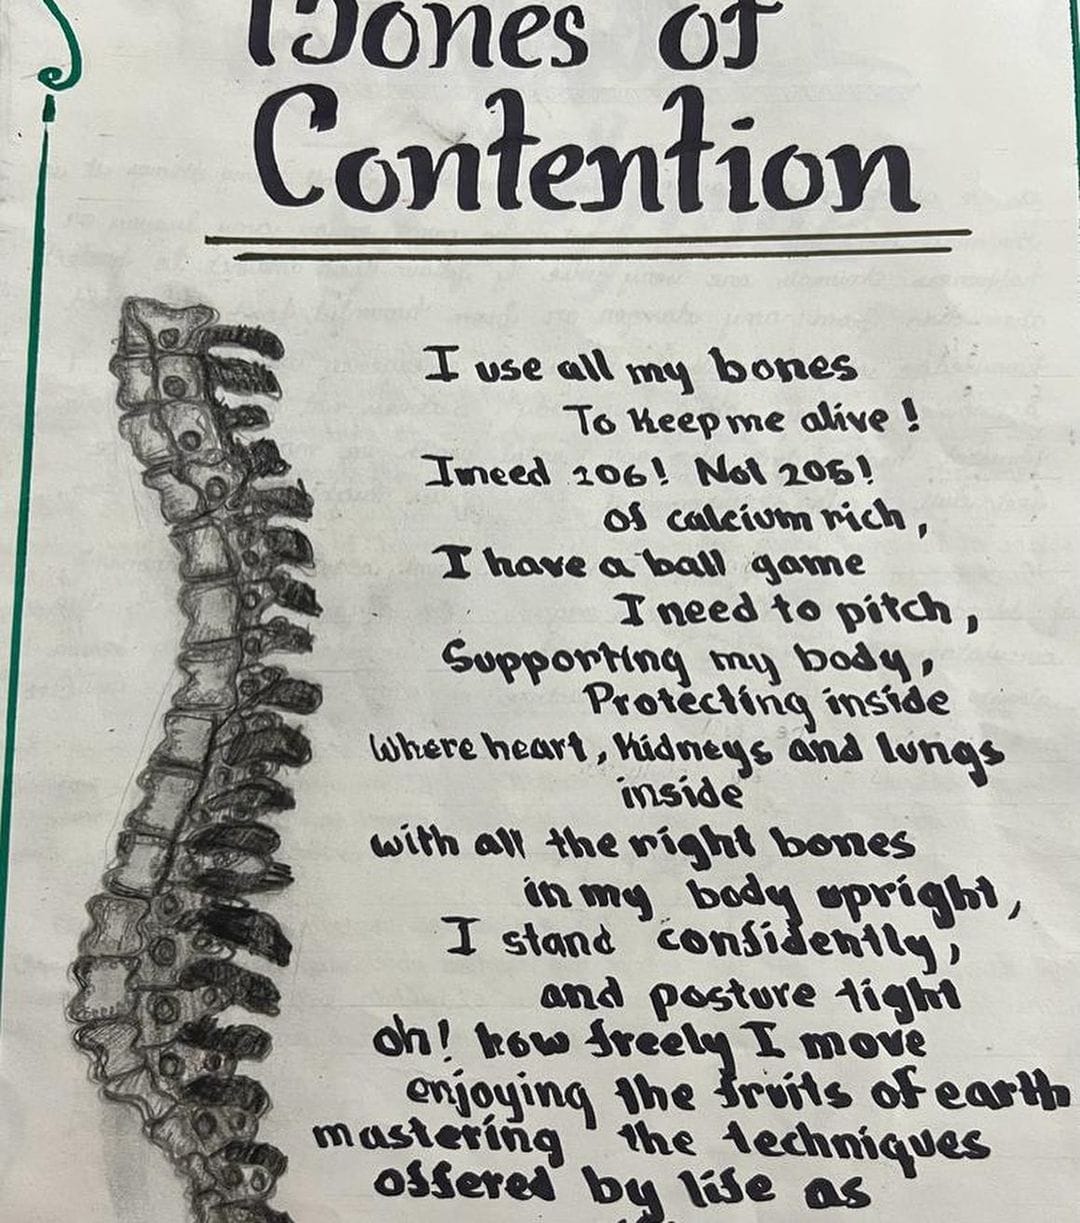 Bones of
Contention
I use all my bones
To Keep me alive!
I need 206! Not 205!
of calcium rich,
I have a ball game
I need to pitch,
Supporting my body,
Protecting inside
Where heart, Kidneys and lungs
inside
with all the right bones
in my body upright,
I stand confidently,
and posture tight
oh! how freely I move
enjoying the fruits of earth
mastering the techniques
offered by life as